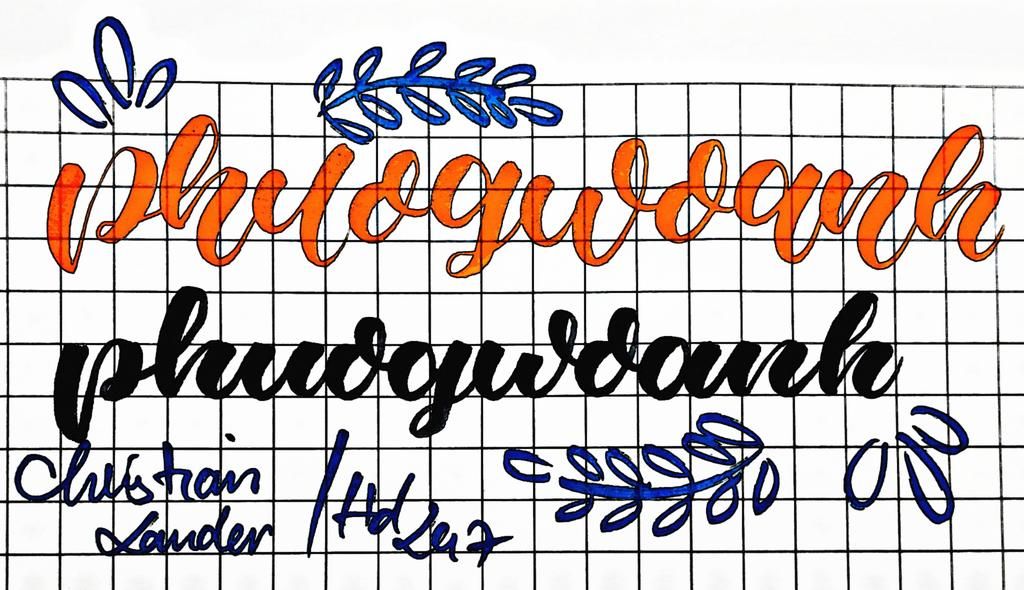 phuogwoanh
phuogwoanh
Christian
Lander